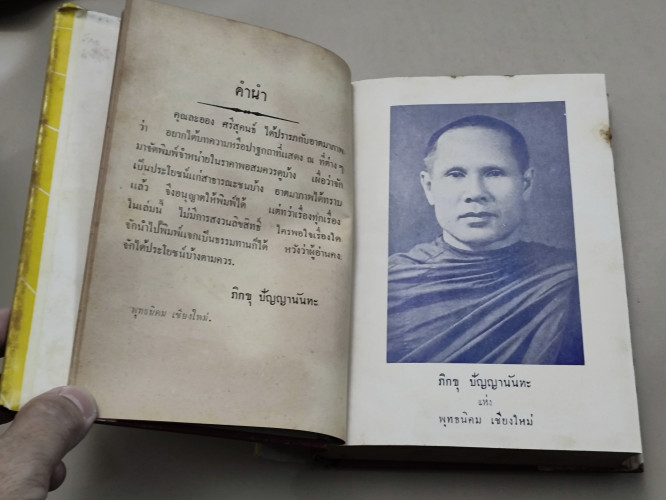 คำนำ
คุณละออง ศรีสุคนธ์ ได้ปรารภกับอาตมาภาพ
ว่า อยากได้บทความหรือปาฐกถาที่แสดง ณ ที่ต่าง ๆ
มาจัดพิมพ์จำหน่ายในราคาพอสมควรดูบ้าง เผื่อว่าจัก
เป็นประโยชน์แก่สาธารณะชนบ้าง อาตมาภาพได้ทราบ
แล้ว จึงอนุญาตให้พิมพ์ได้ แต่ทว่าเรื่องทุกเรื่อง
ในเล่มนี้ ไม่มีการสงวนลิขสิทธิ์ ใครพอใจเรื่องใด
จักนำไปพิมพ์แจกเป็นธรรมทานก็ได้ หวังว่าผู้อ่านคง
จักได้ประโยชน์บ้างตามควร.
ภิกขุ ปัญญานันทะ
พุทธนิคม เชียงใหม่.
ภิกขุ ปัญญานันทะ
แห่ง
พุทธนิคม เชียงใหม่